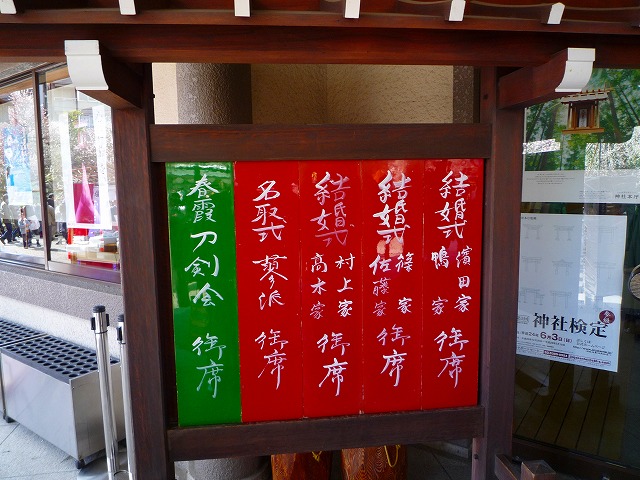 結婚式
濱田家
鴨 家
御席
結婚式
篠 家
佐藤家
御席
結婚式
村上家
高木家
御席
名取式
蓼派
御席
春霞刀剣会
御席
神社検定
平成24年6月3日(日)
神社本庁